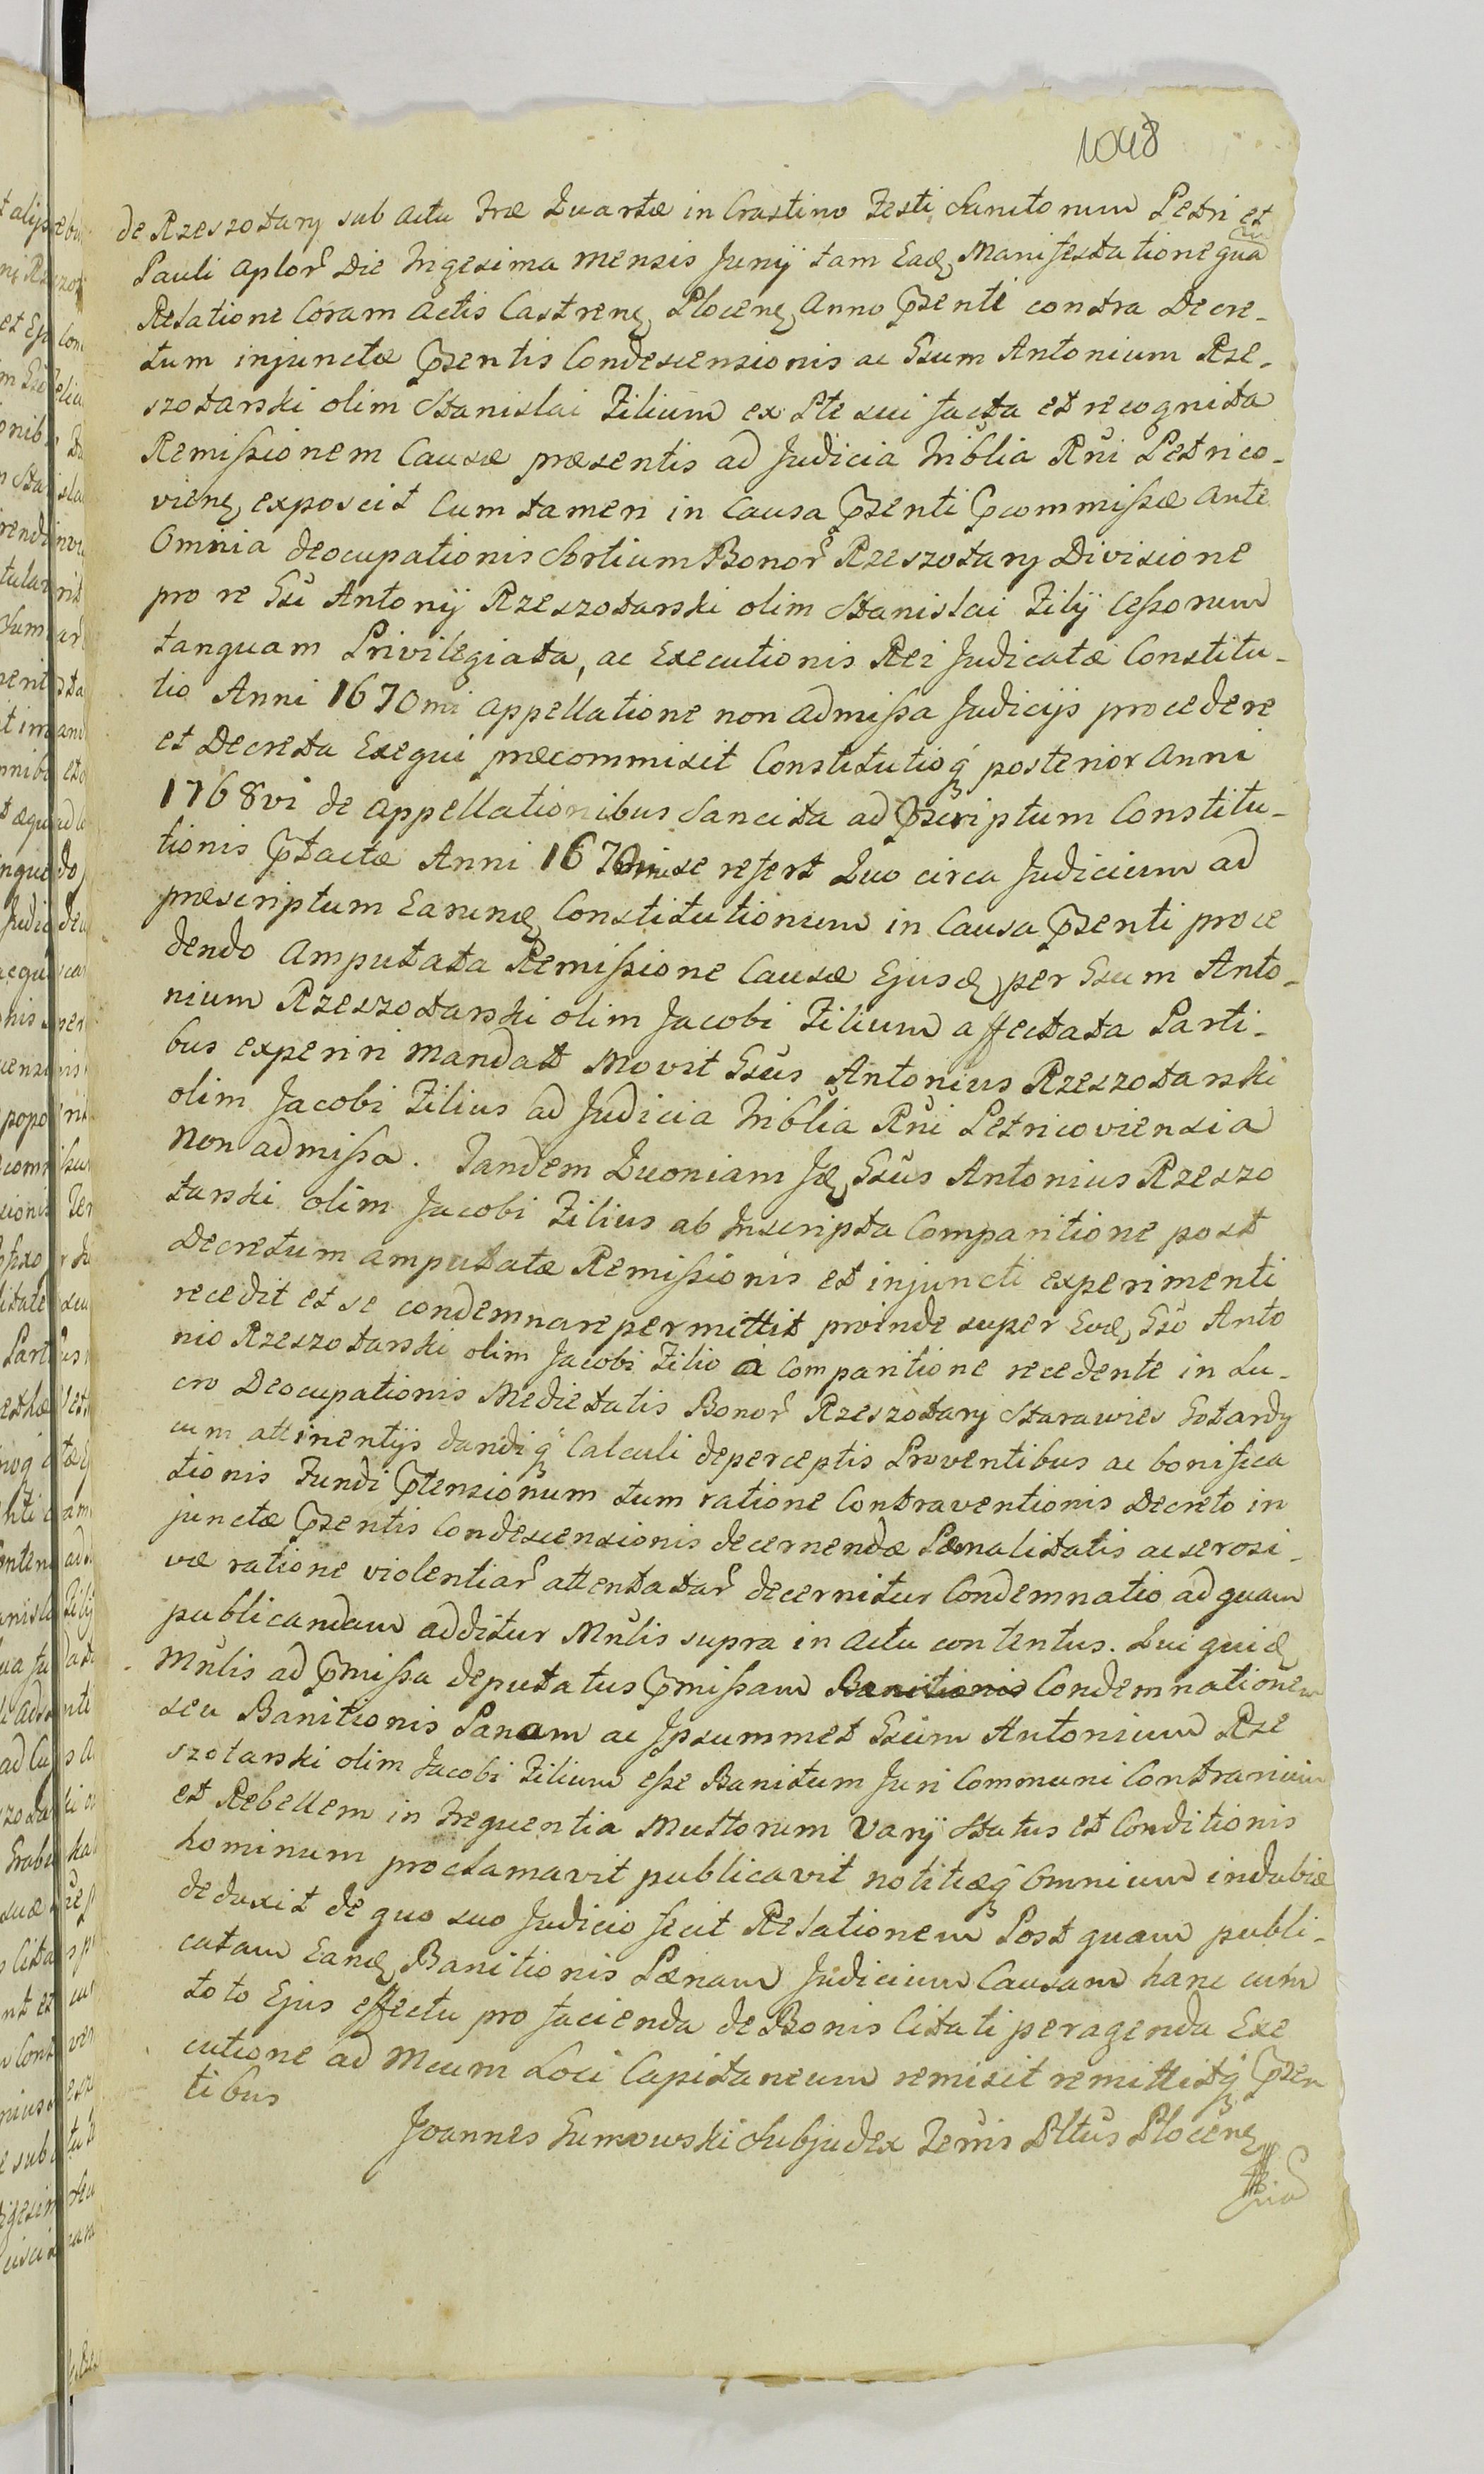 1048
de Rzeszotary sub actu Fræ Quartæ in Crastino Festi Sanctorum Petri et
Pauli aplor̃ Die Trigesima mensis Junij tam Eadẽ Manifestatione quam
Relatione Coram actis Castrenẽ Plocenẽ Anno p̃senti contra Decre-
tum injunctæ p̃sentis Condescensionis ac Gsum Antonium Rze-
szotarski olim Stanislai Filium ex Pte sui facta et recognita
Remißionem Causæ præsentis ad Judicia Triblia Rñi Petrico-
vienẽ exposcit Cum tamen in Causa p̃senti p̃commißæ ante
Omnia deocupationis Sortium Bonor̃ Rzeszotary Divisione
pro re Gsi Antonij Rzeszotarski olim Stanislai Filij Ceßorum
tanquam Privilegiata, ac Executionis Rei Judicatæ Constitu-
tio Anni 1670mi appellatione non admißa Judicijs procedere
et Decreta Exequi præcommisit Constitutioq̃ posterior Anni
1768vi de appellationibus Sancita ad p̃scriptum Constitu-
tionis p̃tactæ Anni 1670mi se refert Quo circa Judicium ad
præscriptum Earundẽ Constitutionum in Causa p̃senti proce
dendo Amputata Remißione Causæ Ejusdẽ per Gsum Anto-
nium Rzeszotarski olim Jacobi Filium affectata Parti-
bus experiri mandat Movit Gsus Antonius Rzeszotarski
olim Jacobi Filius ad Judicia Triblia Rñi Petricoviensia
Non admißa. Tandem Quoniam Idẽ Gsus Antonius Rzeszo
tarski olim Jacobi Filius ab Inscripta Comparitione post
Decretum amputatæ Remißionis et injuncti experimenti
recedit et se condemnare permittit proinde super Eodẽ Gso Anto
nio Rzeszotarski olim Jacobi Filio a comparitione recedente in Lu-
cro Deocupationis Medietatis Bonor̃ Rzeszotary Starawies Gotardy
cum attinentijs dandiq̃ Calculi de perceptis Proventibus ac bonifica
tionis Fundi p̃tensionum tum ratione Contraventionis Decreto in
junctæ p̃sentis Condescensionis decernendæ Pœnalitatis ac serosi-
væ ratione violentiar̃ attentatar̃ decernitur Condemnatio ad quam
publicandam additur Mñlis supra in actu contentus. Qui quidẽ
Mñlis ad p̃mißa deputatus p̃mißam Banitionis Condemnationem
seu Banitionis Pænam ac Ipsummet Gsum Antonium Rze
szotarski olim Jacobi Filium eße Banitum Juri Communi Contrarium
et Rebellem in Frequentia Multorum Varij Status et Conditionis
hominum proclamavit publicavit notitiæq̃ Omnium indubiæ
deduxit de quo suo Judicio fecit Relationem Post quam publi-
catam Eandẽ Banitionis Pœnam Judicium Causam hanc cum
toto Ejus effectu pro facienda de Bonis Citati peragenda Exe
cutione ad Mcum Loci Capitaneum remisit remittitq̃ p̃sen
tibus
Joannes Gumowski Subjudex Terris Pltus Plocenẽ